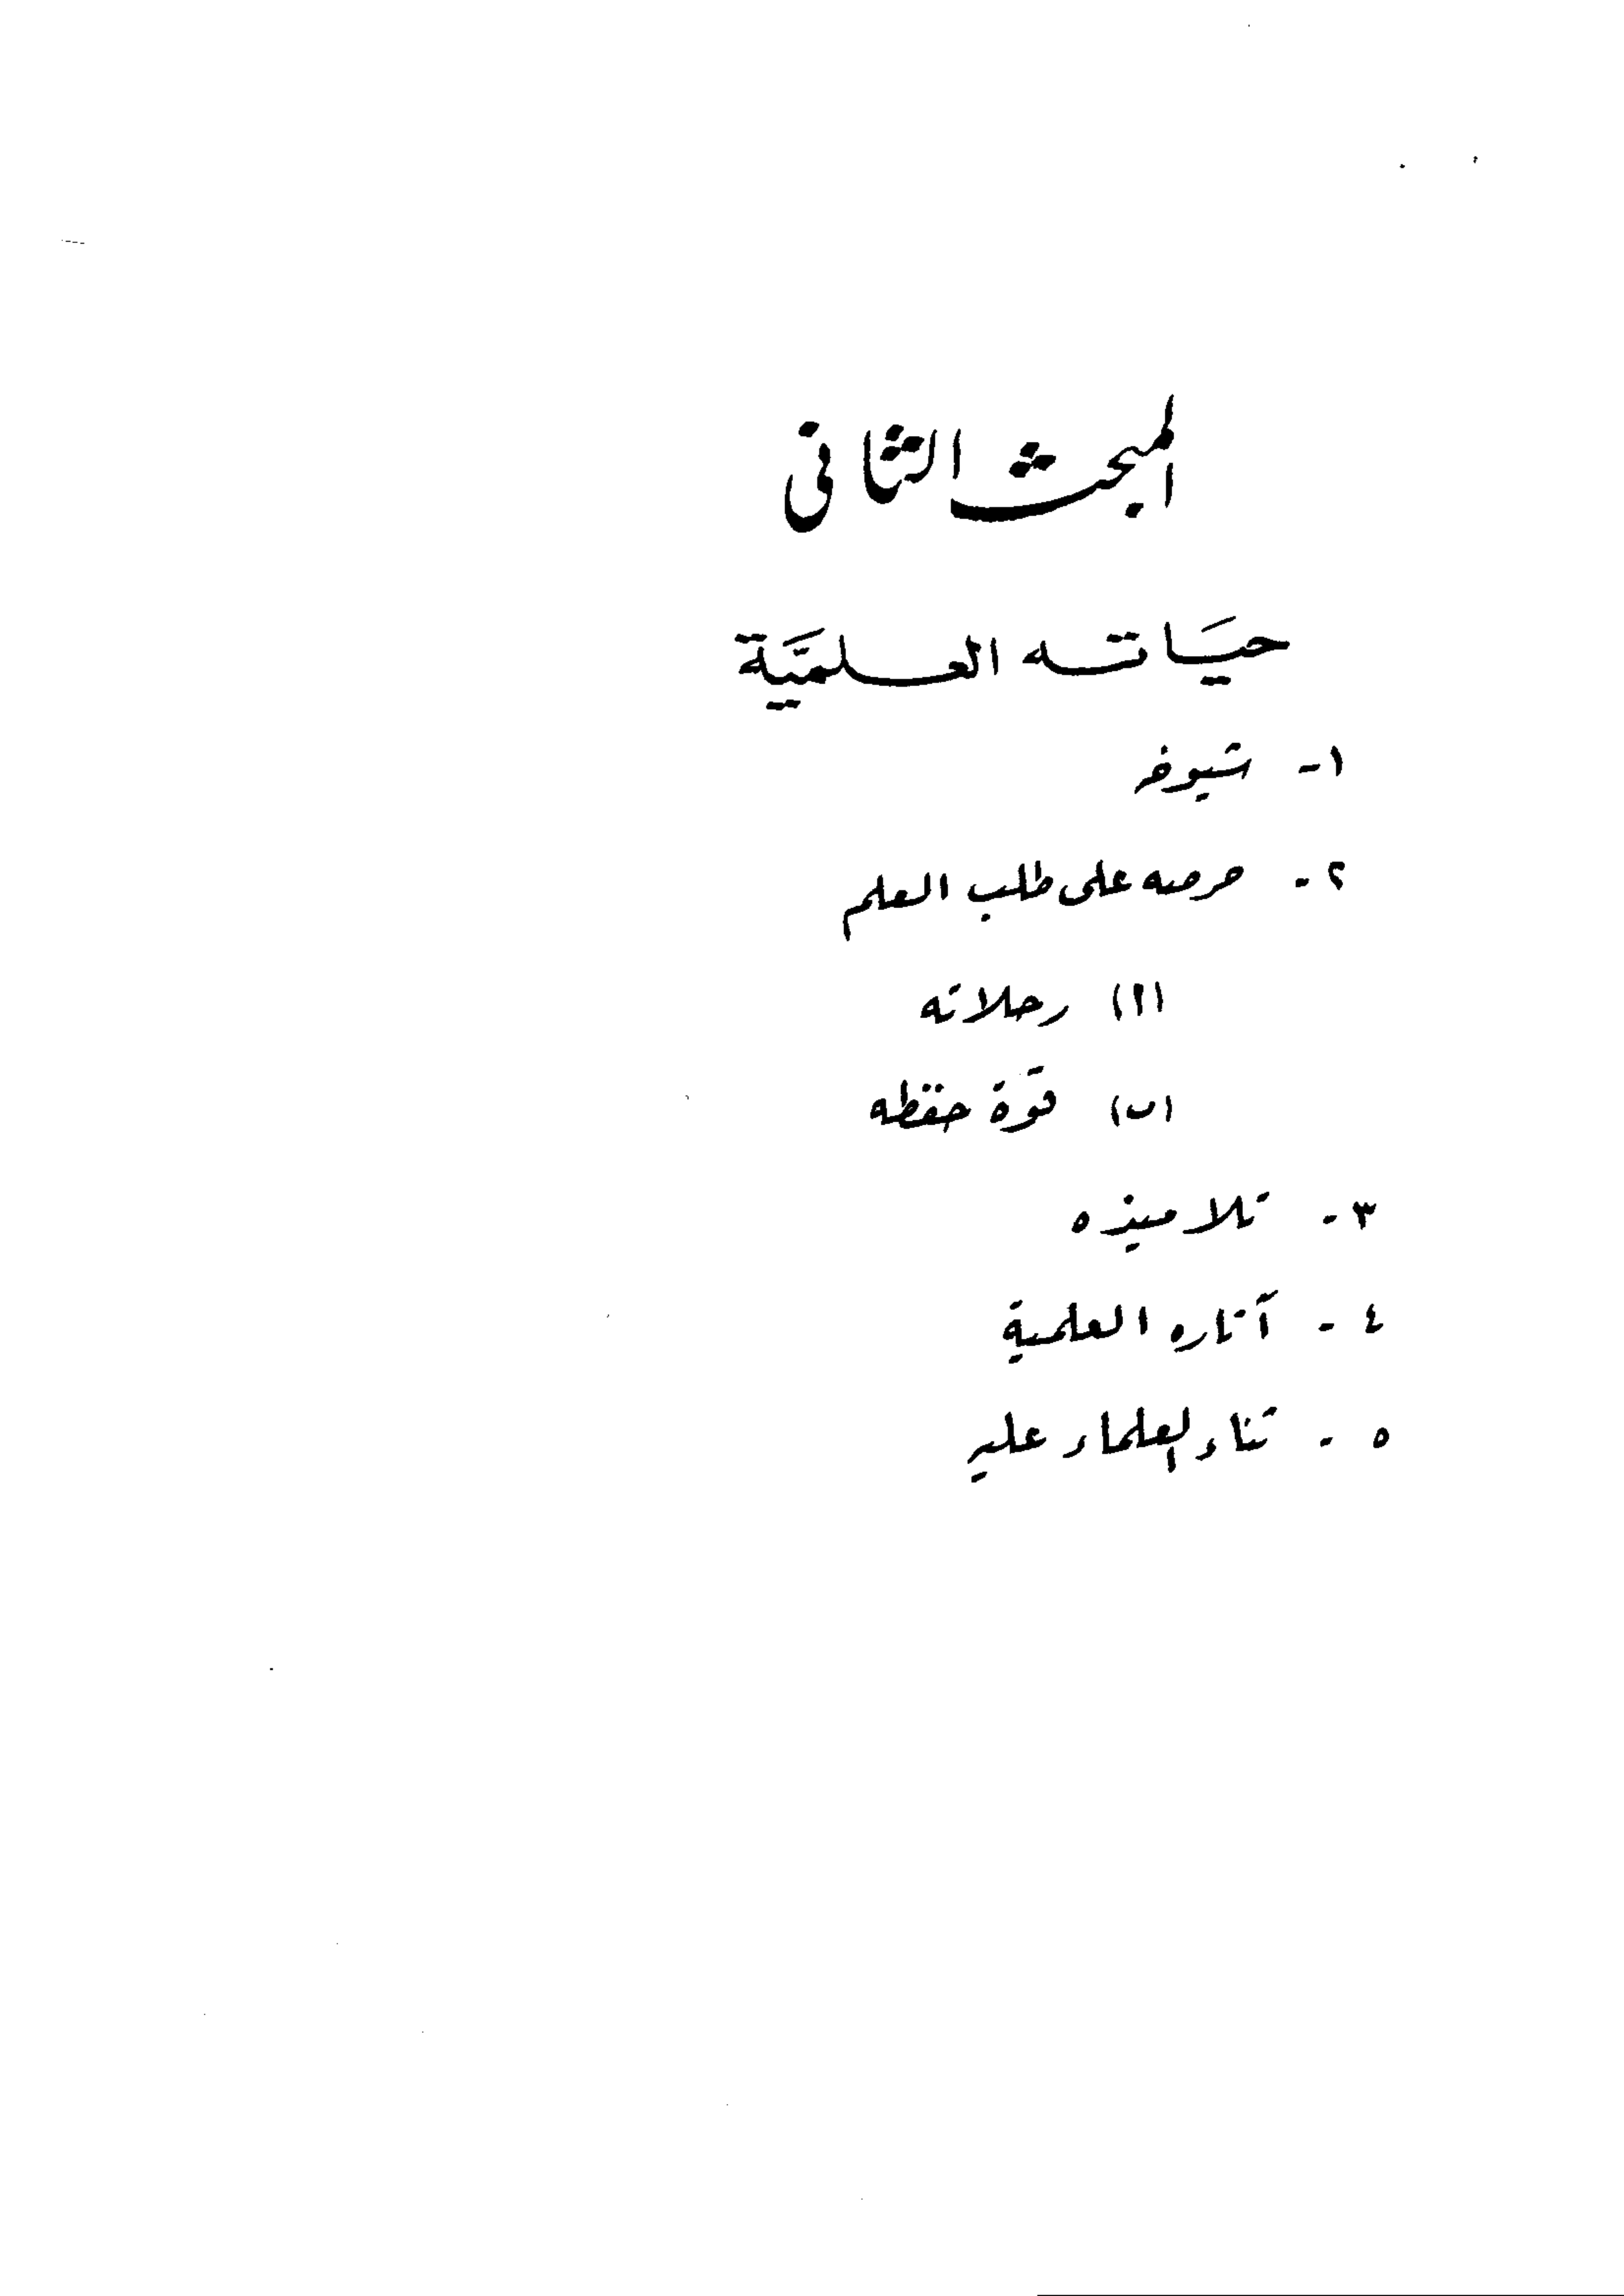 المبحث الثانى
حيَاته العلميَّة
١- شيوخه
٢- حرصه على طلب العلم
(أ) رحلاته
(ب) قوّة حفظه
٣- تلاميذه
٤- آثاره العلمية
٥- ثناء العلماء عليه